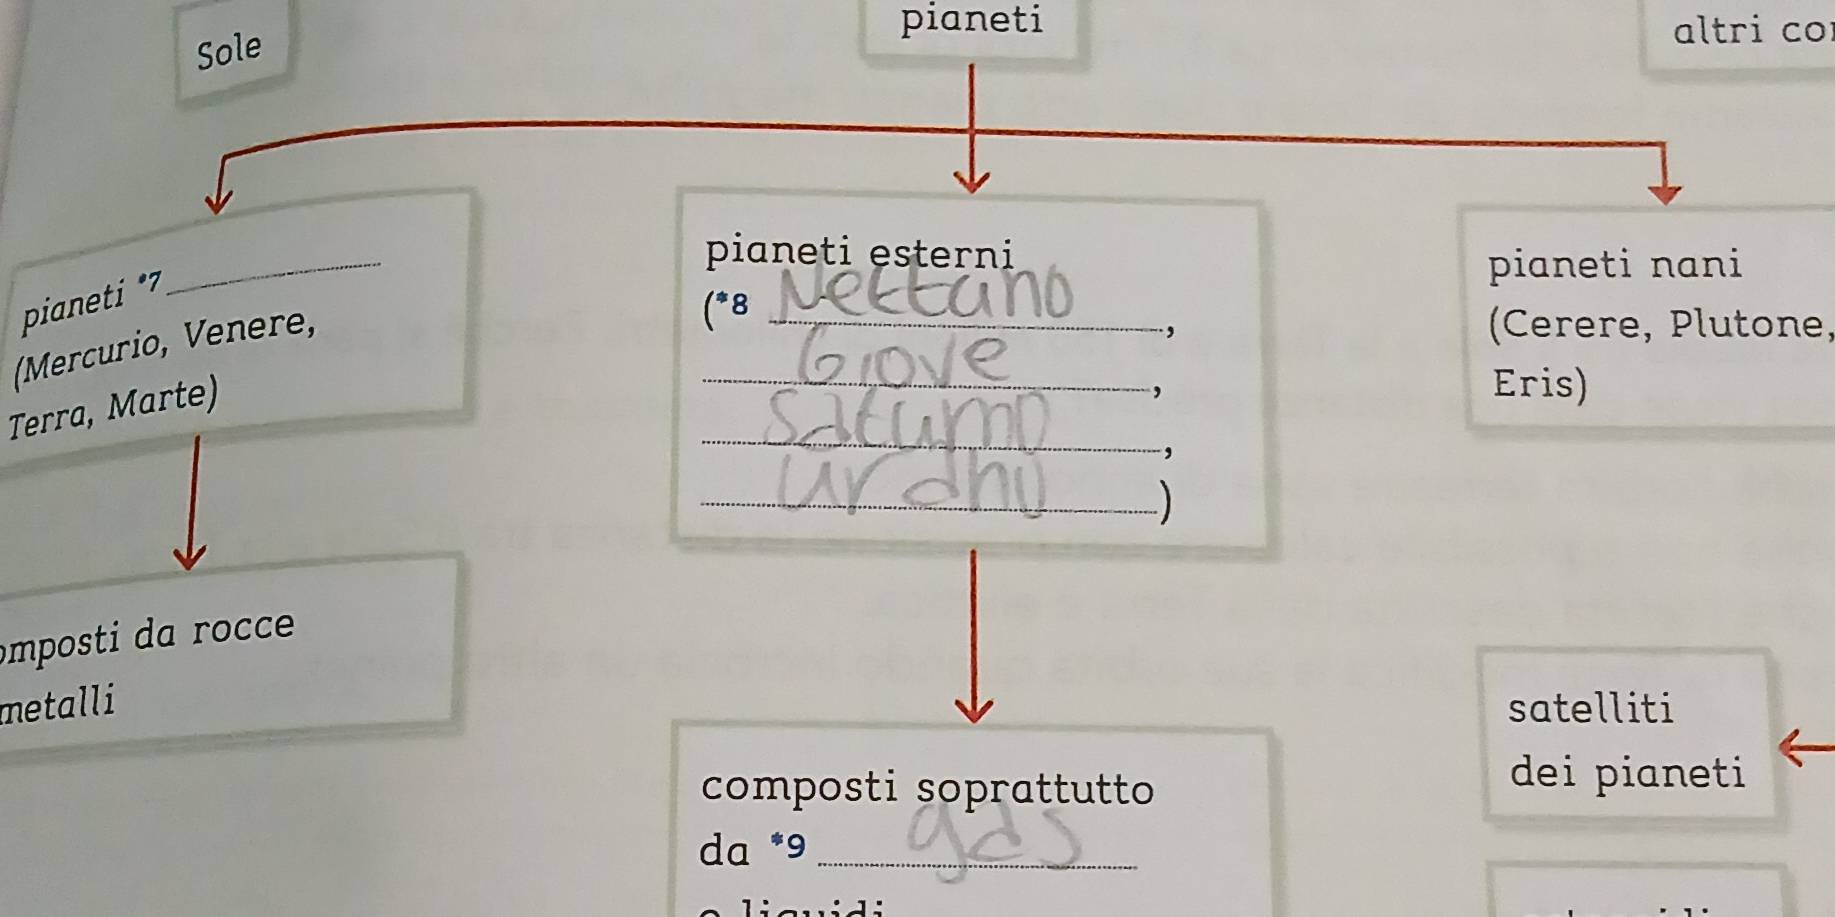 Sole
pianeti
altri
pianeti *7
(Mercurio, Venere,
Terra, Marte)
pianeti esterni
(*8 Nettuno,
Giove,
Saturno,
urano)
pianeti nani
(Cerere, Plutone,
Eris)
omposti da rocce
metalli
satelliti
dei pianeti
composti soprattutto
da *9 gas
o liquidi